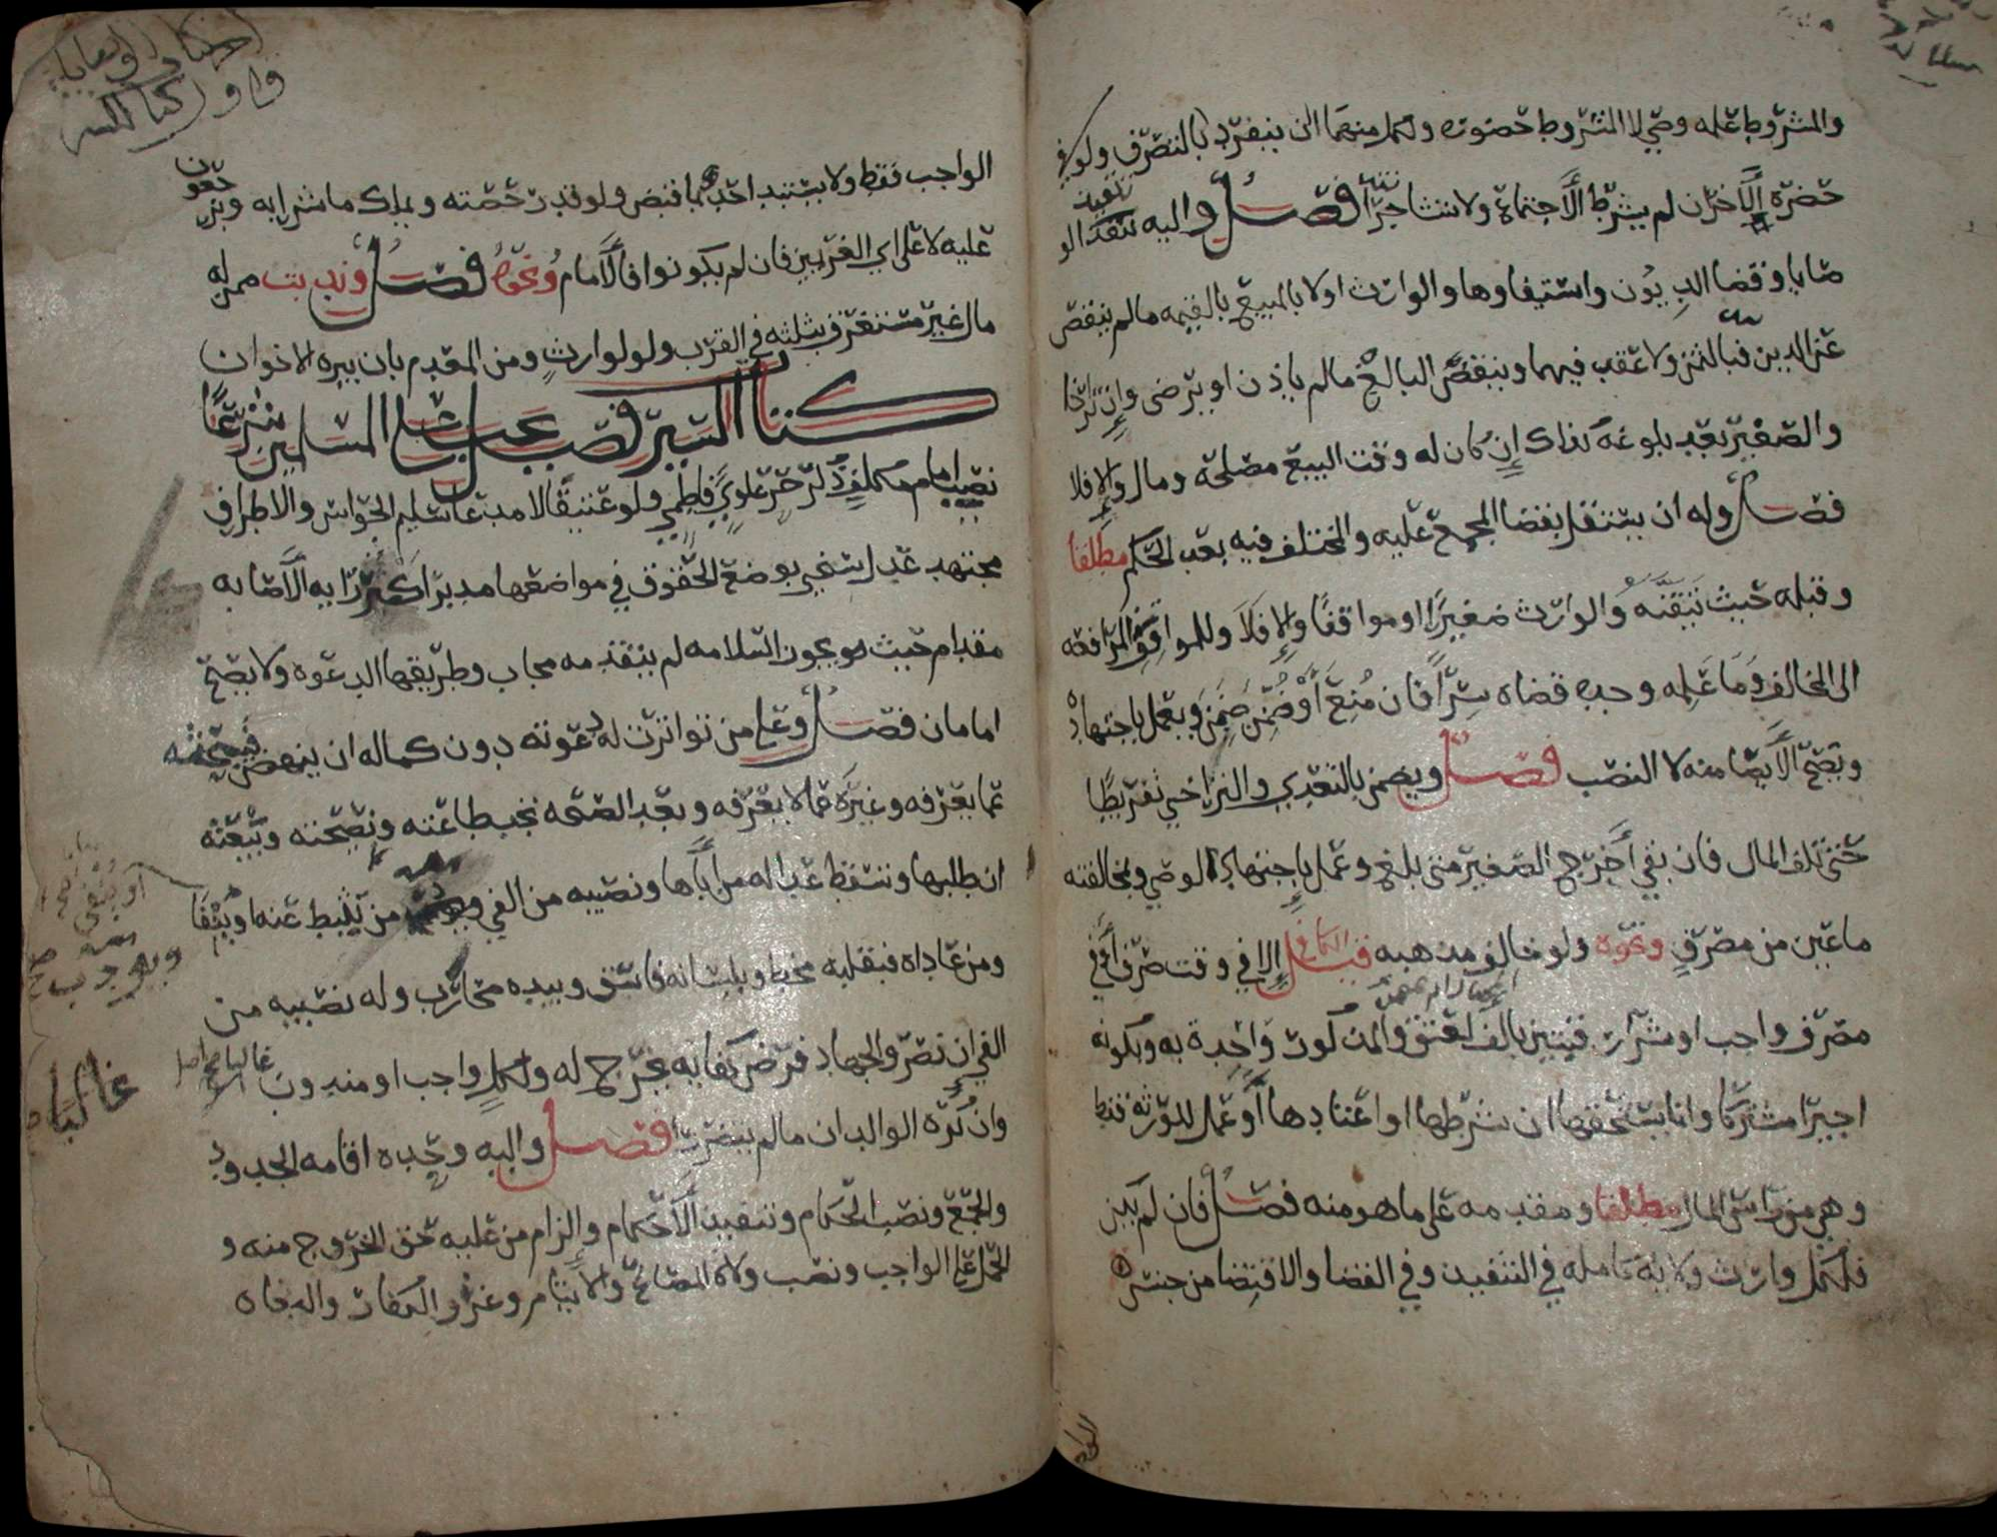 والمشروط علمه وصي لا المشروط حضوره ولكل منهما ان ينفرد بالتصرف ولو في
حضرة الآخر ان لم يشرط الاجتماع ولا تشاجرا فصل واليه تنفيذ الو
صايا وقضا الديون واستيفاوها والوارث اولا بالمبيع بالقيمه مالم ينقص
عن الدين فبالثمن ولا عقد فيهما وينقض البالغ مالم ياذن او يرضى وان تراخا
والصغير بعد بلوغه كذلك ان كان له وقت البيع مصلحة ومال والا فلا
فصل وله ان يستقل بقضا المجمع عليه والمختلف فيه بعد الحكم مطلقا
وقبله حيث تيقنه والوارث صغيرا او موافقا والا فلا وللموافق المرافعة
الى المخالف وما علمه وحده قضاه سرا فان منع او ضمن ضمن ويعمل باجتهاد
ويصح الايصا منه لا النصب فصل ويضمن بالتعدي والتراخي تفريطا
حتى تلف المال فان بقي أخرج الصغير متى بلغ وعمل باجتهاد الوصي وبمخالفته
ما عين من مصرف ونحوه ولو خالف مذهبه قيل الا في وقت صرف او في
مصرف واجب او شرا رقبتين بالف لعتق والمذكور واحدة به وبكونه
اجيرا مشتركا وانما يستحقها ان شرطها او اعتادها او عمل للورثة فقط
وهي من راس المال مطلقا ومقدمه على ما هو منه فصل فان لم يكن
فلكل وارث ولاية كامله في التنفيذ وفي القضا والاقتضا من جنس
الواجب فقط ولا يستبد احد بما قبض ولو قدر حصته ويملك ما شرا به ويرجعون
عليه لا على اي الغريمين فان لم يكونوا فالامام ونحوه فصل وندبت ممن له
مال غير مستغرق بثلثه في القرب ولو لوارث ومن المعدم بان يبره الاخوان
كتاب السير فصل يجب على المسلمين شرعا
نصب امام مكلف ذكر حر علوي فاطمي ولو عتيقا لا مدعا سليم الحواس والاطراف
مجتهد عدل سخي بوضع الحقوق في مواضعها مدبر اكثر رايه الاصابه
مقدام حيث يجوز السلامه لم يتقدمه مجاب وطريقها الدعوة ولا يصح
امامان فصل وعلى من تواترت له دعوته دون كماله ان ينهض فيبحثه
عما يعرفه وغيره عما لا يعرفه وبعد الصحه تجب طاعته ونصيحته وبيعته
ان طلبها وتسقط عدالة من اباها ونصيبه من الفي ويؤدب من يثبط عنه او ينفا
ومن عاداه فبقلبه مخط وبلسانه فاسق وبيده محارب وله نصيبه من
الفي ان نصر والجهاد فرض كفايه يخرج له ولكل واجب او مندوب
وان كره الوالدان مالم يتضررا فصل واليه وحده اقامه الحدود
والجمع ونصب الحكام وتنفيذ الاحكام والزام من عليه حق الخروج منه و
الحمل على الواجب ونصب ولاة المصالح والايتام وغزو الكفار والبغاه
او ينفى
غالبا